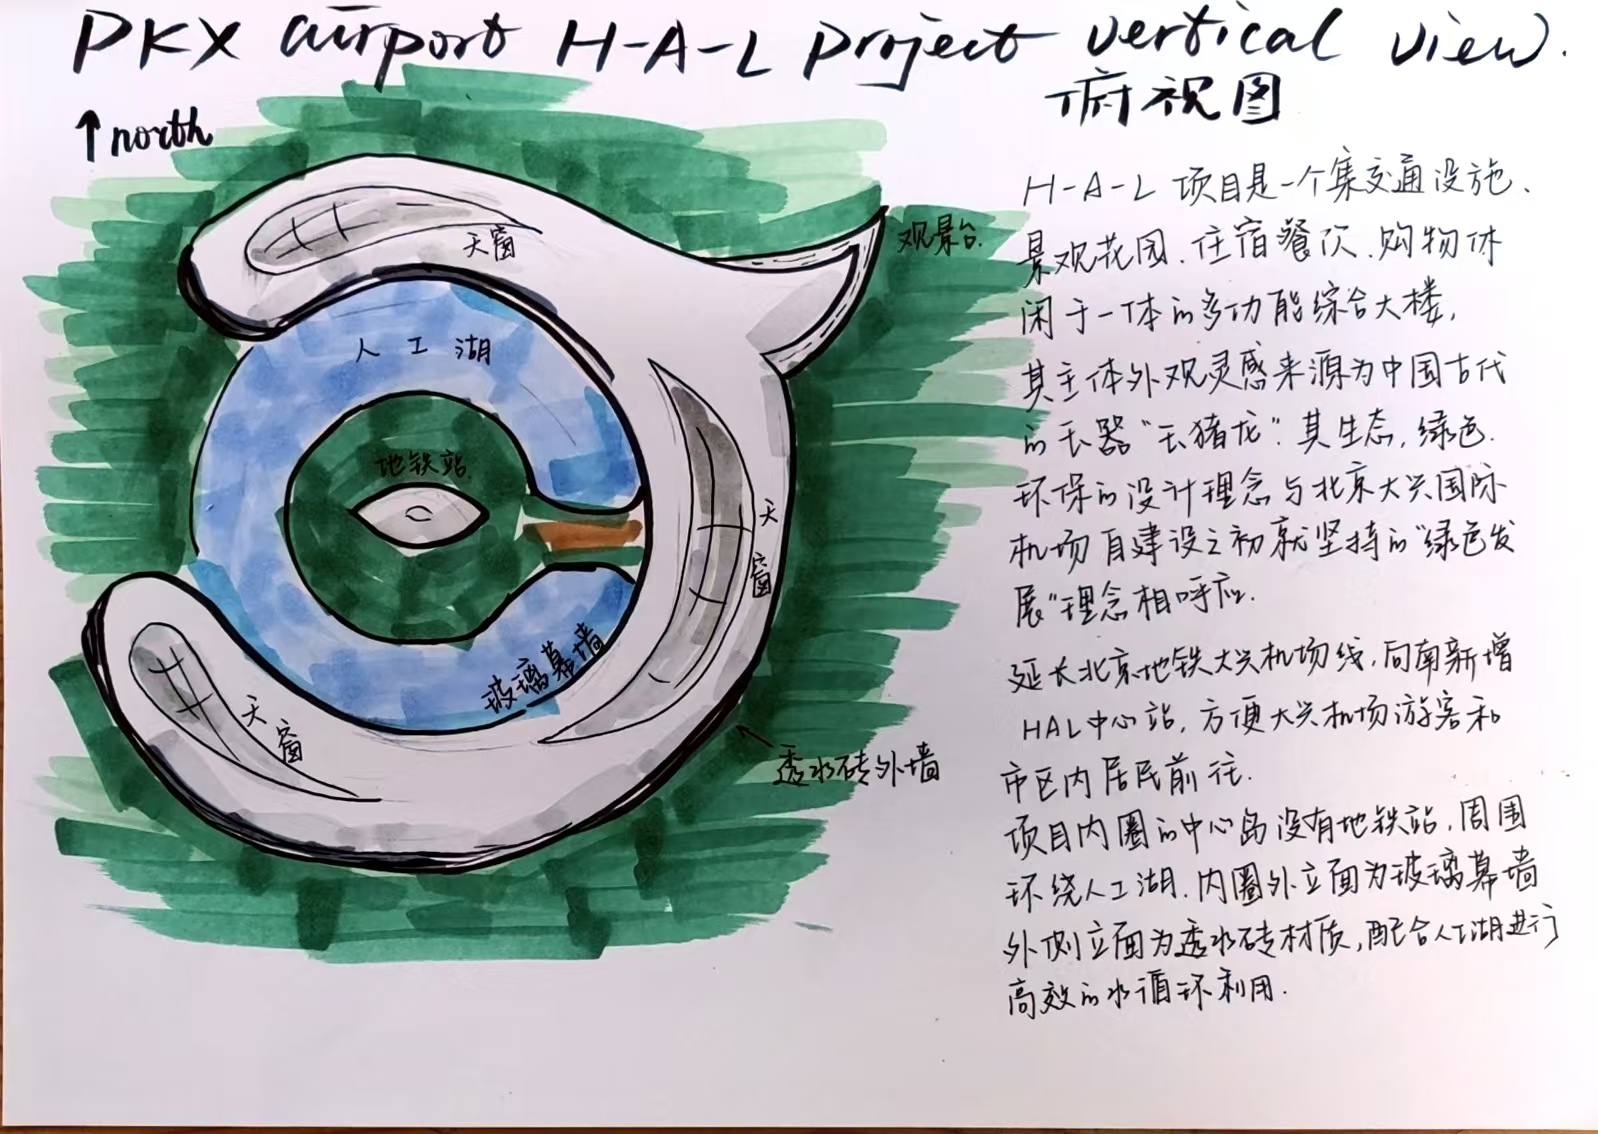 PKX airport H-A-L project vertical view.
俯视图
↑ north
H-A-L 项目是一个集交通设施、
景观花园、住宿餐饮、购物休
闲于一体的多功能综合大楼,
其主体外观灵感来源为中国古代
的玉器“玉猪龙”.其生态,绿色.
环保的设计理念与北京大兴国际
机场自建设之初就坚持的“绿色发
展”理念相呼应.
延长北京地铁大兴机场线,向南新增
HAL中心站,方便大兴机场游客和
市区内居民前往.
项目内圈的中心岛设有地铁站,周围
环绕人工湖.内圈外立面为玻璃幕墙
外侧立面为透水砖材质,配合人工湖进行
高效的水循环利用.
天窗
观景台.
人工湖
地铁站
天窗
玻璃幕墙
天窗
透水砖外墙